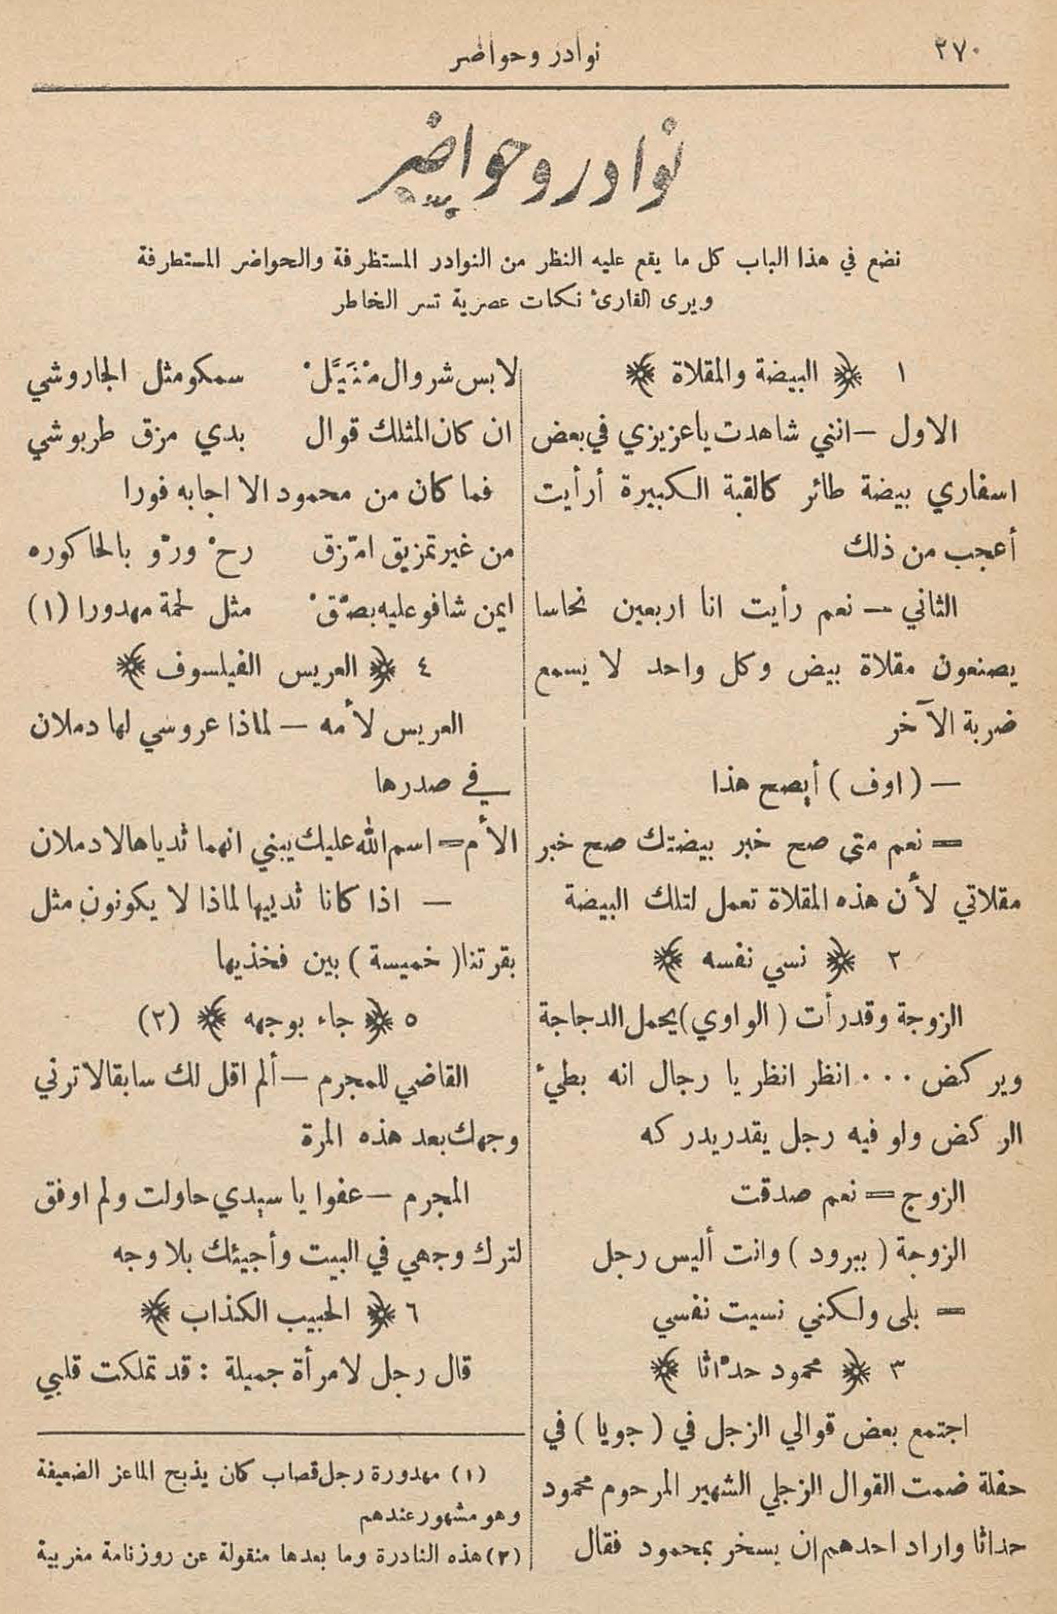 ٢٧٠
نوادر وحواضر
نوادر وحواضر
نضع في هذا الباب كل ما يقع عليه النظر من النوادر المستظرفة والحواضر المستطرفة
ويرى القارئ نكات عصرية تسر الخاطر
١ ﴿ البيضة والمقلاة ﴾
الاول — انني شاهدت ياعزيزي في بعض
اسفاري بيضة طائر كالقبة الكبيرة أرأيت
أعجب من ذلك
الثاني — نعم رأيت انا اربعين نحاسا
يصنعون مقلاة بيض وكل واحد لا يسمع
ضربة الآخر
— ( اوف ) أيصح هذا
= نعم متى صح خبر بيضتك صح خبر
مقلاتي لأن هذه المقلاة تعمل لتلك البيضة
٢ ﴿ نسي نفسه ﴾
الزوجة وقد رأت ( الواوي ) يحمل الدجاجة
ويركض ٠٠٠ انظر انظر يا رجال انه بطيء
الركض ولو فيه رجل يقدر يدركه
الزوج = نعم صدقت
الزوجة ( ببرود ) وانت أليس رجل
= بلى ولكنني نسيت نفسي
٣ ﴿ محمود حداثا ﴾
اجتمع بعض قوالي الزجل في ( جويا ) في
حفلة ضمت القوال الزجلي الشهير المرحوم محمود
حداثا واراد احدهم ان يسخر بمحمود فقال
لابس شروال منيّل سمكو مثل الجاروشي
ان كان المثلك قوال بدي مزق طربوشي
فما كان من محمود الا اجابه فورا
من غير تمزيق امزق رح وروّ بالحاكوره
ايمن شافو عليه بصق مثل لحمة مهدورا (١)
٤ ﴿ العريس الفيلسوف ﴾
العريس لأمه — لماذا عروسي لها دملان
في صدرها
الأم = اسم الله عليك يبني انهما ثدياها لا دملان
— اذا كانا ثدييها لماذا لا يكونون مثل
بقرتنا ( خميسة ) بين فخذيها
٥ ﴿ جاء بوجهه ﴾ (٢)
القاضي للمجرم — ألم اقل لك سابقا لا ترني
وجهك بعد هذه المرة
المجرم — عفوا يا سيدي حاولت ولم اوفق
لترك وجهي في البيت وأجيئك بلا وجه
٦ ﴿ الحبيب الكذاب ﴾
قال رجل لامرأة جميلة : قد تملكت قلبي
(١) مهدورة رجل قصاب كان يذبح الماعز الضعيفة
وهو مشهور عندهم
(٢) هذه النادرة وما بعدها منقولة عن روزنامة مغربية